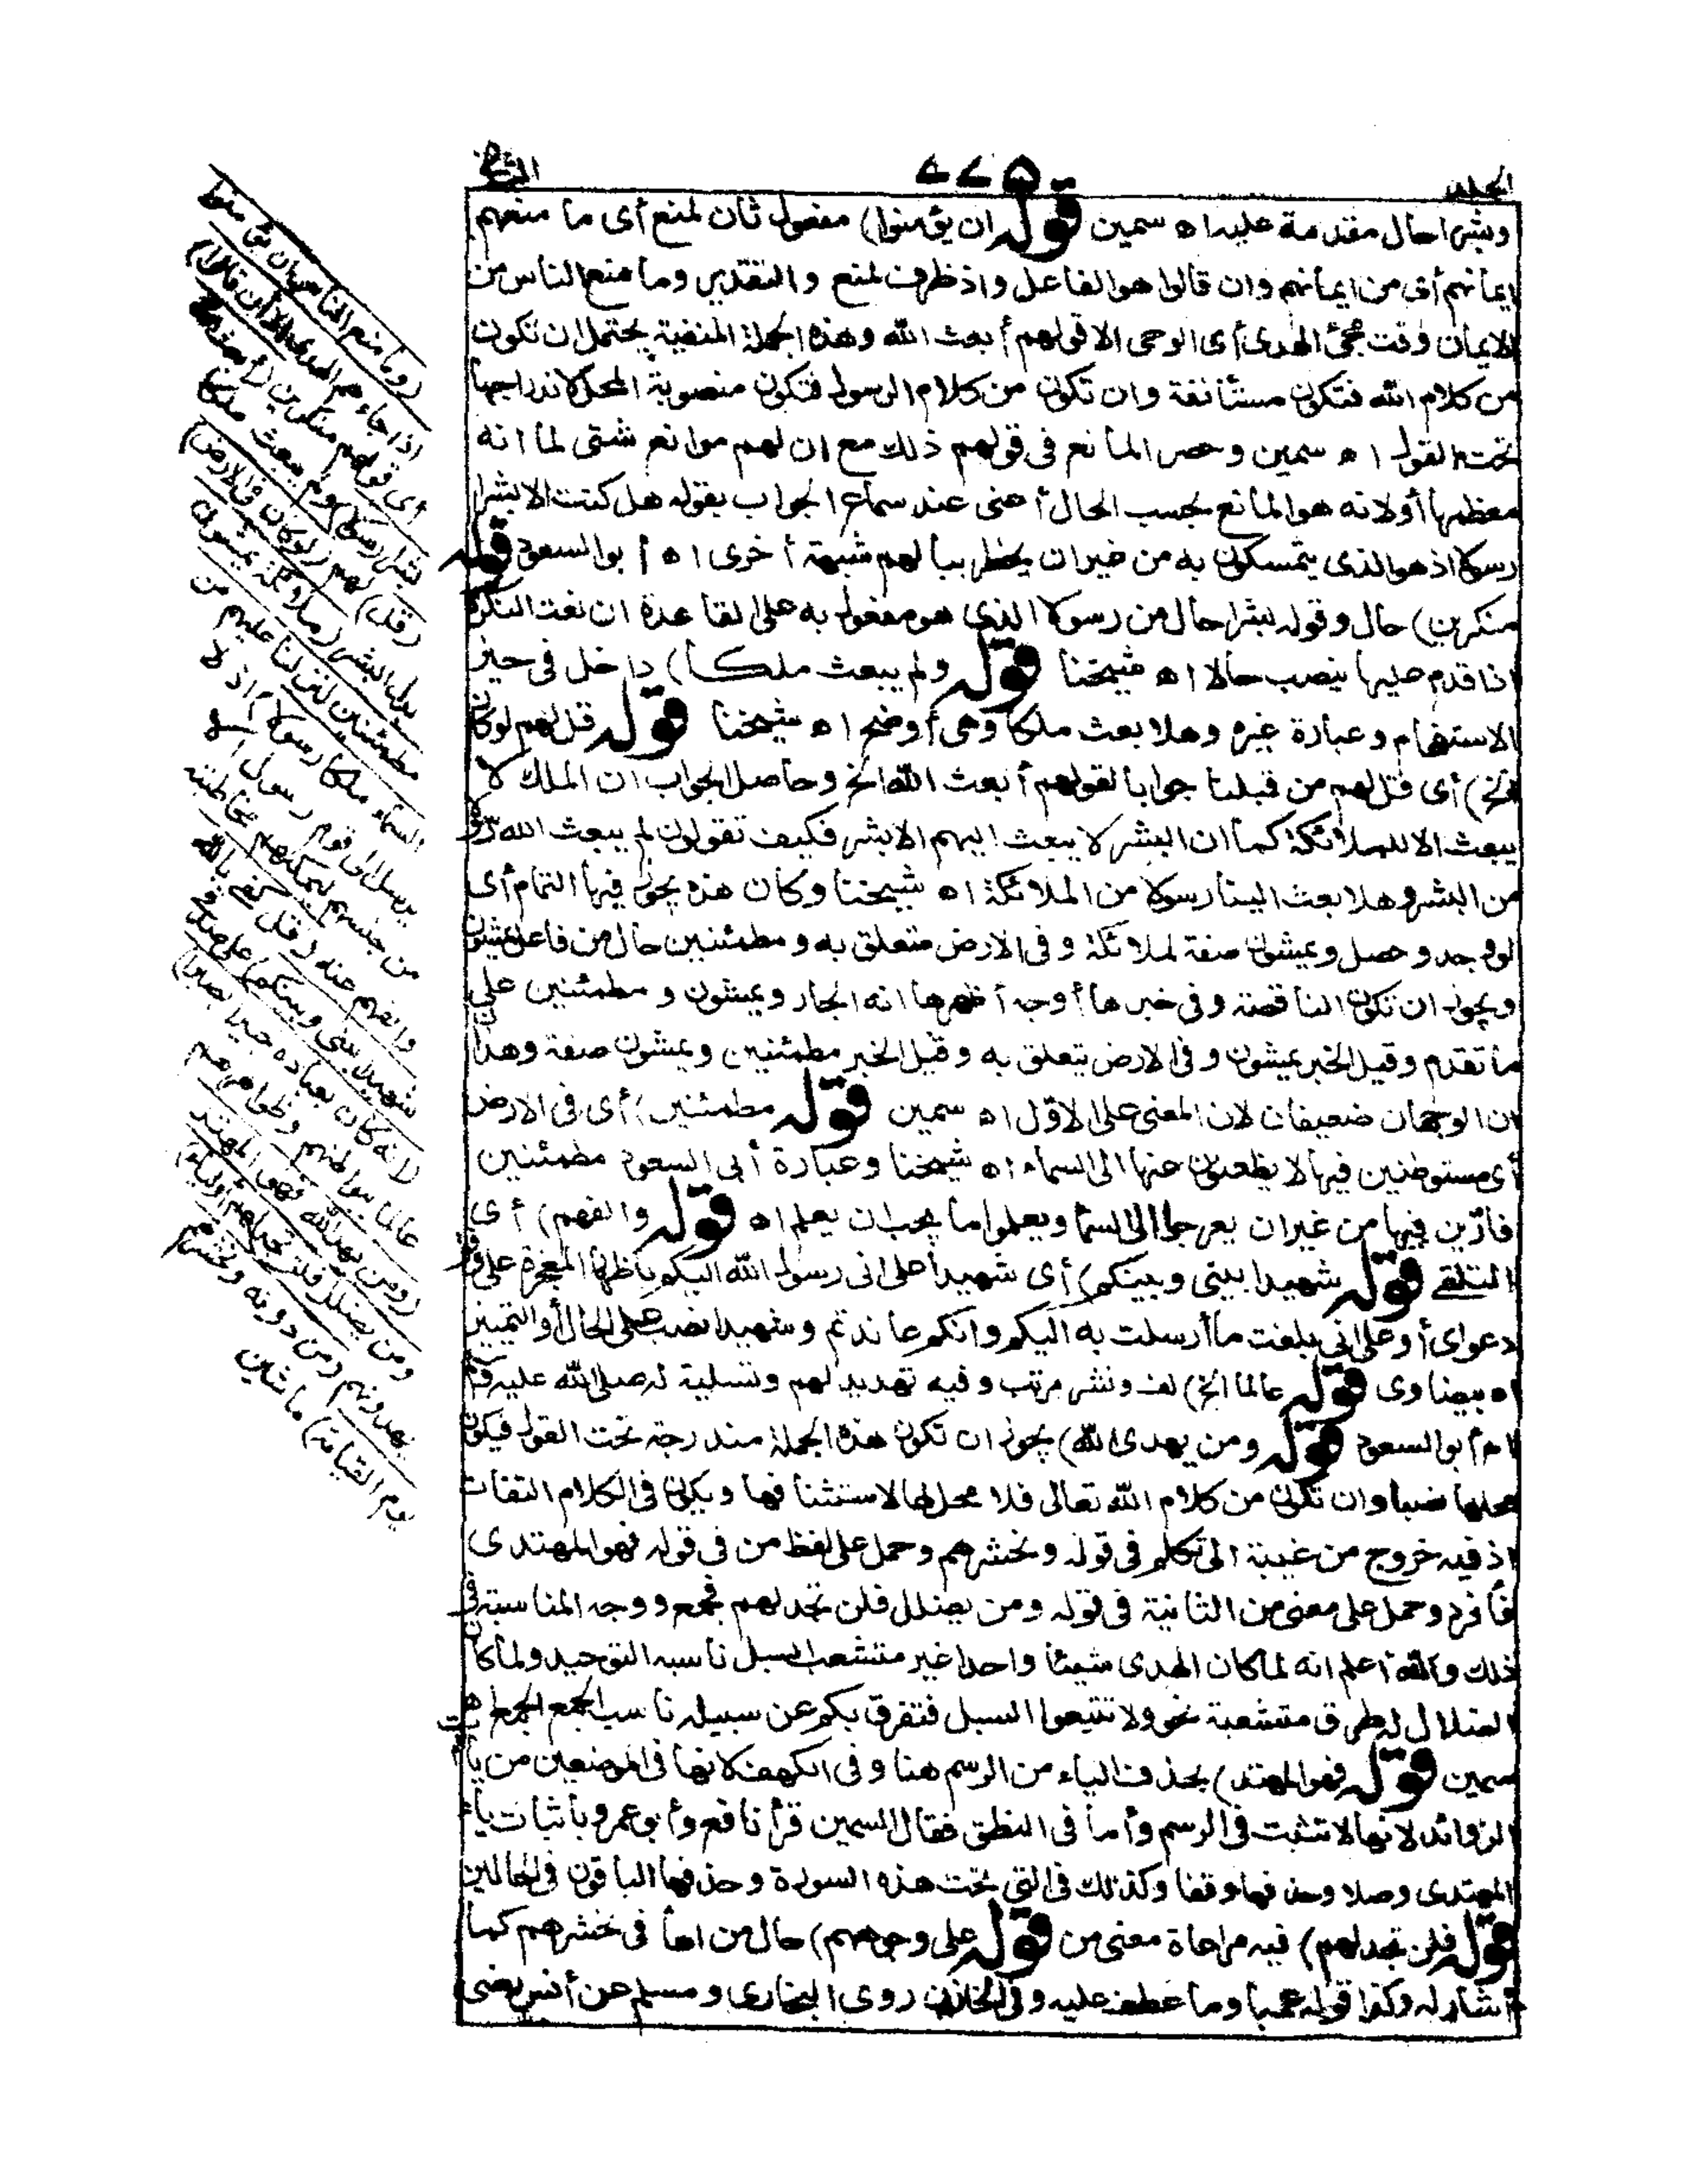 الجلد
٥٧٤
الثانى
وبشرا حال مقدمة عليه اه سمين قوله ان يؤمنوا) مفعول ثان لمنع أى ما منعهم
ايمانهم أى من ايمانهم وان قالوا هو الفاعل واذ ظرف لمنع والتقدير وما منع الناس من
الايمان وقت مجئ الهدى أى الوحى الا قولهم أبعث الله وهذه الجملة المنفية يحتمل ان تكون
من كلام الله فتكون مستأنفة وان تكون من كلام الرسول فتكون منصوبة المحل لاندراجها
تحت القول اه سمين وحصر المانع فى قولهم ذلك مع ان لهم موانع شتى لما انه
معظمها أولانه هو المانع بحسب الحال أعنى عند سماع الجواب بقوله هل كنت الا بشرا
رسولا اذ هو الذى يتمسكون به من غير ان يخطر ببالهم شبهة أخرى اه أبو السعود قوله
منكرين) حال وقوله بشرا حال من رسولا الذى هو مفعول به على القاعدة ان نعت النكرة
اذا قدم عليها ينصب حالا اه شيخنا قوله ولم يبعث ملكا) داخل فى حيز
الاستفهام وعبارة غيره وهلا بعث ملكا وهى أوضح اه شيخنا قوله قل لهم لوكان
الخ) أى قل لهم من قبلنا جوابا لقولهم أبعث الله الخ وحاصل الجواب ان الملك لا
يبعث الا للملائكة كما ان البشر لا يبعث اليهم الا بشر فكيف تقولون لم يبعث الله رسولا
من البشر وهلا بعث الينا رسولا من الملائكة اه شيخنا وكان هذه يجوز فيها التمام أى
لو وجد وحصل ويمشون صفة لملائكة وفى الارض متعلق به ومطمئنين حال من فاعل يمشون
ويجوز ان تكون الناقصة وفى خبرها أوجه أظهرها انه الجار ويمشون ومطمئنين على
ما تقدم وقيل الخبر يمشون وفى الارض يتعلق به وقيل الخبر مطمئنين ويمشون صفة وهذا
ان الوجهان ضعيفان لان المعنى على الاول اه سمين قوله مطمئنين) أى فى الارض
أى مستوطنين فيها لا يظعنون عنها الى السماء اه شيخنا وعبارة أبى السعود مطمئنين
قارّين فيها من غير ان يعرجوا الى السما ويعلموا ما يجب ان يعلم اه قوله والفهم) أى
التلقى قوله شهيدا بينى وبينكم) أى شهيدا على انى رسول الله اليكم باظهار المعجزة على وفق
دعواى أو على انى بلغت ما أرسلت به اليكم وانكم عاندتم وشهيدا نصب على الحال أو التمييز
اه بيضاوى قوله عالما الخ) لف ونشر مرتب وفيه تهديد لهم وتسلية له صلى الله عليه وسلم
اه أبو السعود قوله ومن يهدى الله) يجوز ان تكون هذه الجملة مندرجة تحت القول فيكون
محلها نصبا وان تكون من كلام الله تعالى فلا محل لها لاستئنافها ويكون فى الكلام التفات
اذ فيه خروج من غيبة الى تكلم فى قوله ونحشرهم وحمل على لفظ من فى قوله فهو المهتدى
فأفرد وحمل على معنى من الثانية فى قوله ومن يضلل فلن تجد لهم فجمع ووجه المناسبة فى
ذلك والله أعلم انه لما كان الهدى شيئا واحدا غير متشعب السبل ناسبه التوحيد ولما كان
الضلال له طرق متشعبة نحو ولا تتبعوا السبل فتفرق بكم عن سبيله ناسب الجمع الجمع اه
سمين قوله فهو المهتد) بحذف الياء من الرسم هنا وفى الكهف لانها فى الموضعين من ياآت
الزوائد لانها لا تثبت فى الرسم وأما فى النطق فقال السمين قرأ نافع وأبو عمرو باثبات ياء
المهتدى وصلا وحذفها وقفا وكذلك فى التى تحت هذه السورة وحذفها الباقون فى الحالين
قوله فلن تجد لهم) فيه مراعاة معنى من قوله على وجوههم) حال من الها فى نحشرهم كما
أشار له وكذا قوله عميا وما عطف عليه وفى الخازن روى البخارى ومسلم عن أنس رضى
(وما منع الناس ان يؤمنوا
اذ جاءهم الهدى الا أن قالوا)
أى قولهم منكرين (أبعث الله
بشرا رسولا) ولم يبعث ملكا
(قل) لهم (لو كان فى الارض)
بدل البشر (ملائكة يمشون
مطمئنين لنزلنا عليهم من
السماء ملكا رسولا) اذ لا
يرسل الى قوم رسول الا
من جنسهم ليمكنهم مخاطبته
والفهم عنه (قل كفى بالله
شهيدا بينى وبينكم) على صدقى
(انه كان بعباده خبيرا بصيرا)
عالما ببواطنهم وظواهرهم
(ومن يهد الله فهو المهتد
ومن يضلل فلن تجد لهم أولياء)
يهدونهم (من دونه ونحشرهم
يوم القيامة) ماشين